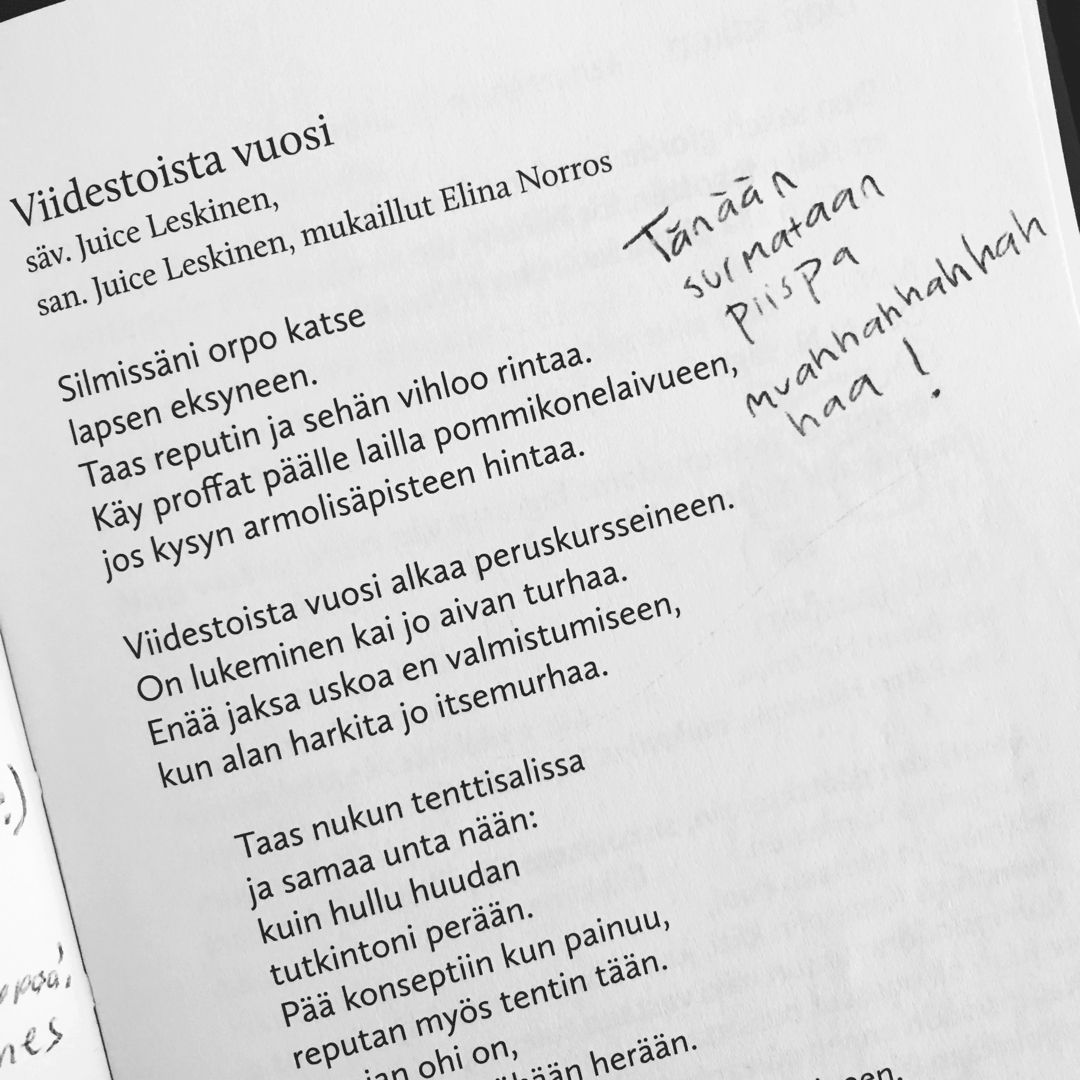 Viidestoista vuosi
säv. Juice Leskinen,
san. Juice Leskinen, mukaillut Elina Norros
Tänään
surmataan
piispa
muahhahhahhah
haa!
Silmissäni orpo katse
lapsen eksyneen.
Taas reputin ja sehän vihloo rintaa.
Käy proffat päälle lailla pommikonelaivueen,
jos kysyn armolisäpisteen hintaa.
Viidestoista vuosi alkaa peruskursseineen.
On lukeminen kai jo aivan turhaa.
Enää jaksa uskoa en valmistumiseen,
kun alan harkita jo itsemurhaa.
Taas nukun tenttisalissa
ja samaa unta nään:
kuin hullu huudan
tutkintoni perään.
Pää konseptiin kun painuu,
reputan myös tentin tään.
ohi on,
herään.
:)